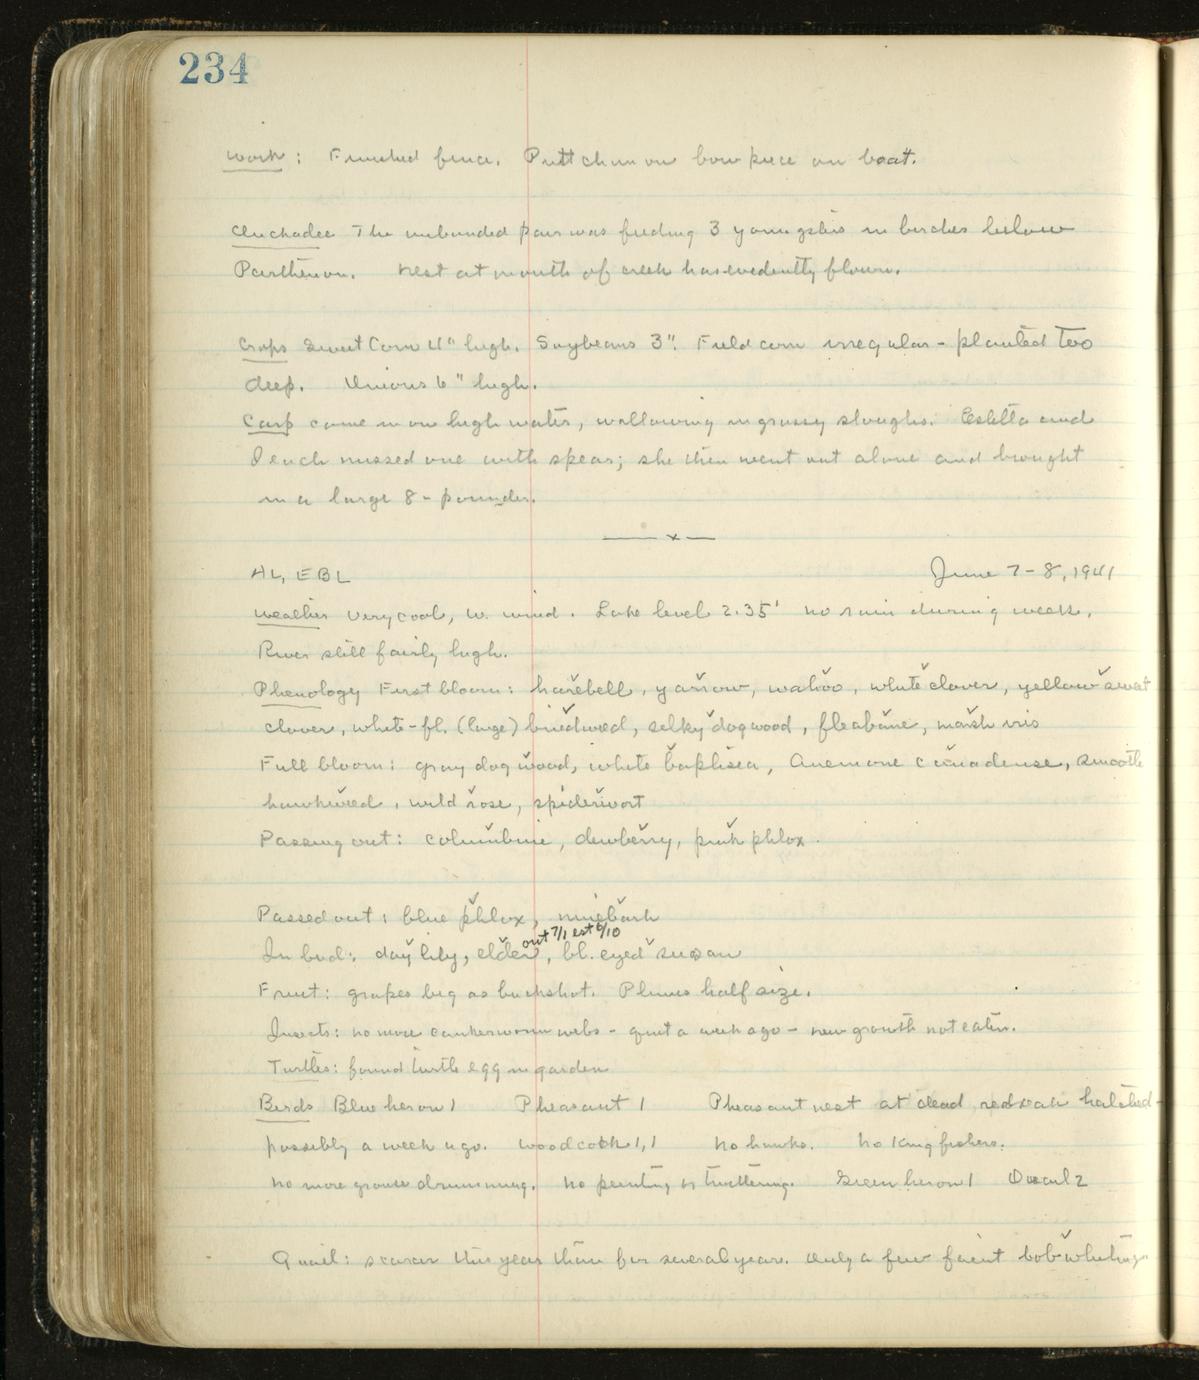 234
Work: Finished fence. Putt chine on bow piece on boat.
Chickadee The unbanded pair was feeding 3 youngsters in birches below
Parthenon. Nest at mouth of creek has evidently flown.
Crops Sweet Corn 4" high. Soybeans 3". Field corn irregular - planted too
deep. Onions 6" high.
Carp came in on high water, wallowing in grassy sloughs. Estella and
I each missed one with spear; she then went out alone and brought
in a large 8-pounder.
—x—
AL, EBL June 7-8, 1941
Weather Very cool, W. wind. Lake level 2.35' no rain during week.
River still fairly high.
Phenology First bloom: harebell, yarrow, wahoo, white clover, yellow sweet
clover, white-fl. (large) bindweed, silky dogwood, fleabane, marsh iris
Full bloom: gray dogwood, white baptisia, Anemone canadense, smooth
hawkweed, wild rose, spiderwort
Passing out: columbine, dewberry, pink phlox.
Passed out: blue phlox, ninebark
out 7/1 est 6/10
In bud: day lily, elder, bl. eyed susan
Fruit: grapes big as buckshot. Plums half size.
Insects: no more cankerworm webs - quit a week ago - new growth not eaten.
Turtles: found turtle egg in garden
Birds Blue heron 1 Pheasant 1 Pheasant nest at dead red oak hatched -
possibly a week ago. Woodcock 1, 1 No hawks. No kingfishers.
No more grouse drumming. No peenting or twittering. Green heron 1 Quail 2
Quail: scarcer this year than for several years. Only a few faint bobwhitings